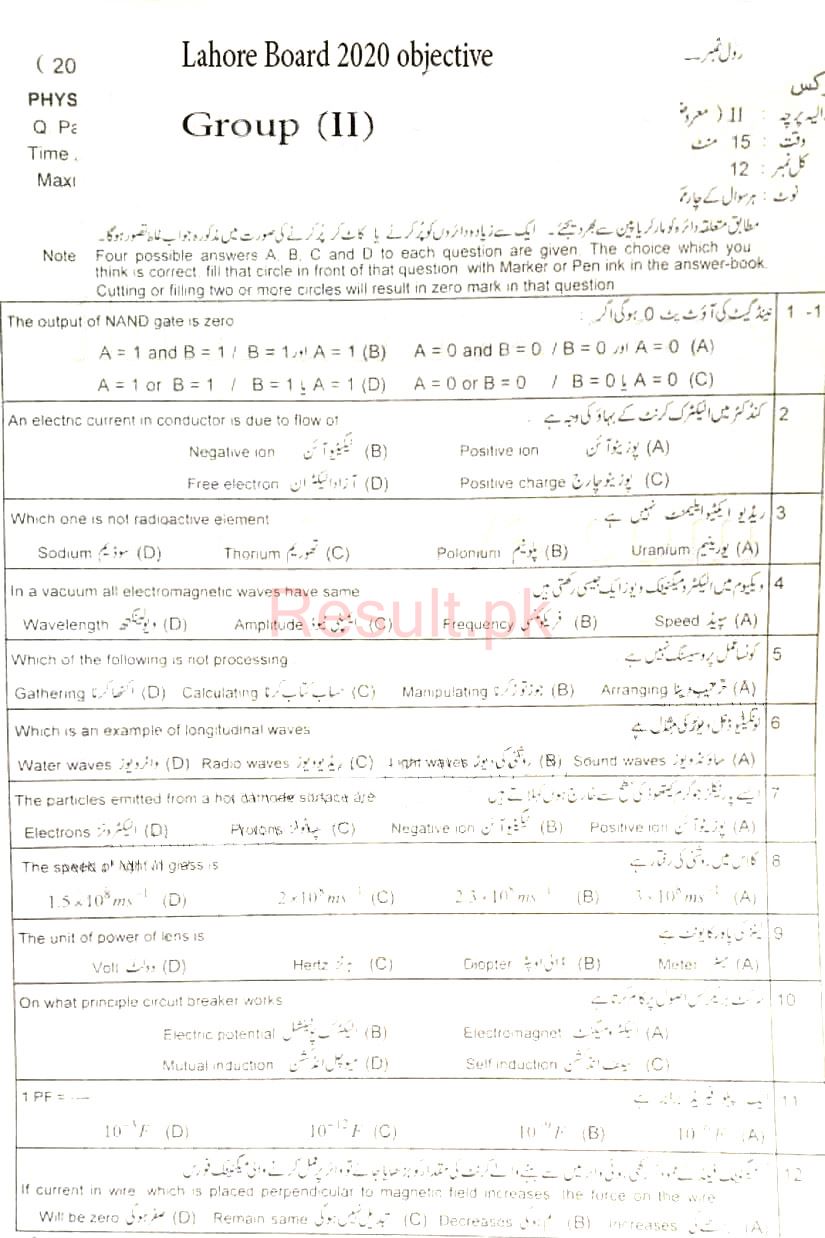 Lahore Board 2020 objective
Group (II)
رول نمبر
( 20
PHYS
Q Pa
Time
Maxi
II : (
وقت : 15 منٹ
کل نمبر : 12
نوٹ : ہر سوال کے چار
مطابق متعلقہ دائرہ کو مارکر یا پین سے بھر دیجئے۔ ایک سے زیادہ دائروں کو پُر کرنے یا کاٹ کر پُر کرنے کی صورت میں مذکورہ جواب غلط تصور ہوگا۔
Note Four possible answers A, B, C and D to each question are given. The choice which you
think is correct, fill that circle in front of that question with Marker or Pen ink in the answer-book.
Cutting or filling two or more circles will result in zero mark in that question
The output of NAND gate is zero نینڈ گیٹ کی آؤٹ پٹ 0 ہوگی اگر : 1 -1
A = 1 and B = 1 / B = 1 اور A = 1 (B) A = 0 and B = 0 / B = 0 اور A = 0 (A)
A = 1 or B = 1 / B = 1 یا A = 1 (D) A = 0 or B = 0 / B = 0 یا A = 0 (C)
An electric current in conductor is due to flow of کنڈکٹر میں الیکٹرک کرنٹ کے بہاؤ کی وجہ ہے 2
Negative ion نیگیٹیو آئن (B) Positive ion پوزیٹو آئن (A)
Free electron آزاد الیکٹران (D) Positive charge پوزیٹو چارج (C)
Which one is not radioactive element ریڈیو ایکٹیو ایلیمنٹ نہیں ہے 3
Sodium سوڈیم (D) Thorium تھوریم (C) Polonium پلونیم (B) Uranium یورینیم (A)
In a vacuum all electromagnetic waves have same ویکیوم میں الیکٹرومیگنیٹک ویوز ایک جیسی رکھتی ہیں 4
Wavelength ویولینگتھ (D) Amplitude ایمپلی ٹیوڈ (C) Frequency فریکوئنسی (B) Speed سپیڈ (A)
Result.pk
Which of the following is not processing کونسا عمل پروسیسنگ نہیں ہے 5
Gathering اکٹھا کرنا (D) Calculating حساب کتاب کرنا (C) Manipulating جوڑ توڑ کرنا (B) Arranging ترتیب دینا (A)
Which is an example of longitudinal waves لونگیٹیوڈنل ویوز کی مثال ہے 6
Water waves واٹر ویوز (D) Radio waves ریڈیو ویوز (C) Light waves روشنی کی ویوز (B) Sound waves ساؤنڈ ویوز (A)
The particles emitted from a hot cathode surface are ایسے پارٹیکلز جو گرم کیتھوڈ کی سطح سے خارج ہوں کہلاتے ہیں 7
Electrons الیکٹرونز (D) Protons پروٹونز (C) Negative ion نیگیٹیو آئن (B) Positive ion پوزیٹو آئن (A)
The speed of light in glass is گلاس میں روشنی کی رفتار ہے 8
1.5 × 10⁸ ms⁻¹ (D) 2 × 10⁸ ms⁻¹ (C) 2.3 × 10⁸ ms⁻¹ (B) 3 × 10⁸ ms⁻¹ (A)
The unit of power of lens is لینز کی پاور کا یونٹ ہے 9
Volt وولٹ (D) Hertz ہرٹز (C) Diopter ڈائی اوپٹر (B) Meter میٹر (A)
On what principle circuit breaker works سرکٹ بریکر کس اصول پر کام کرتا ہے 10
Electric potential الیکٹرک پوٹینشل (B) Electromagnet الیکٹرومیگنٹ (A)
Mutual induction میوچل انڈکشن (D) Self induction سیلف انڈکشن (C)
1 PF = ---- ہے 11
(D) 10⁻¹² F (C) 10⁻⁹ F (B) (A)
12
If current in wire which is placed perpendicular to magnetic field increases, the force on the wire
Will be zero صفر ہوگی (D) Remain same تبدیل نہیں ہوگی (C) Decreases (B) Increases (A)